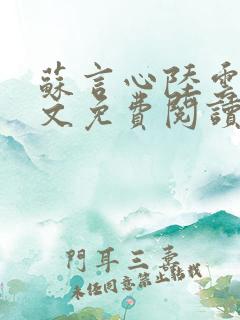 蘇言心陸雲
文免費閱讀
門耳三橐
未經同意禁止轉載